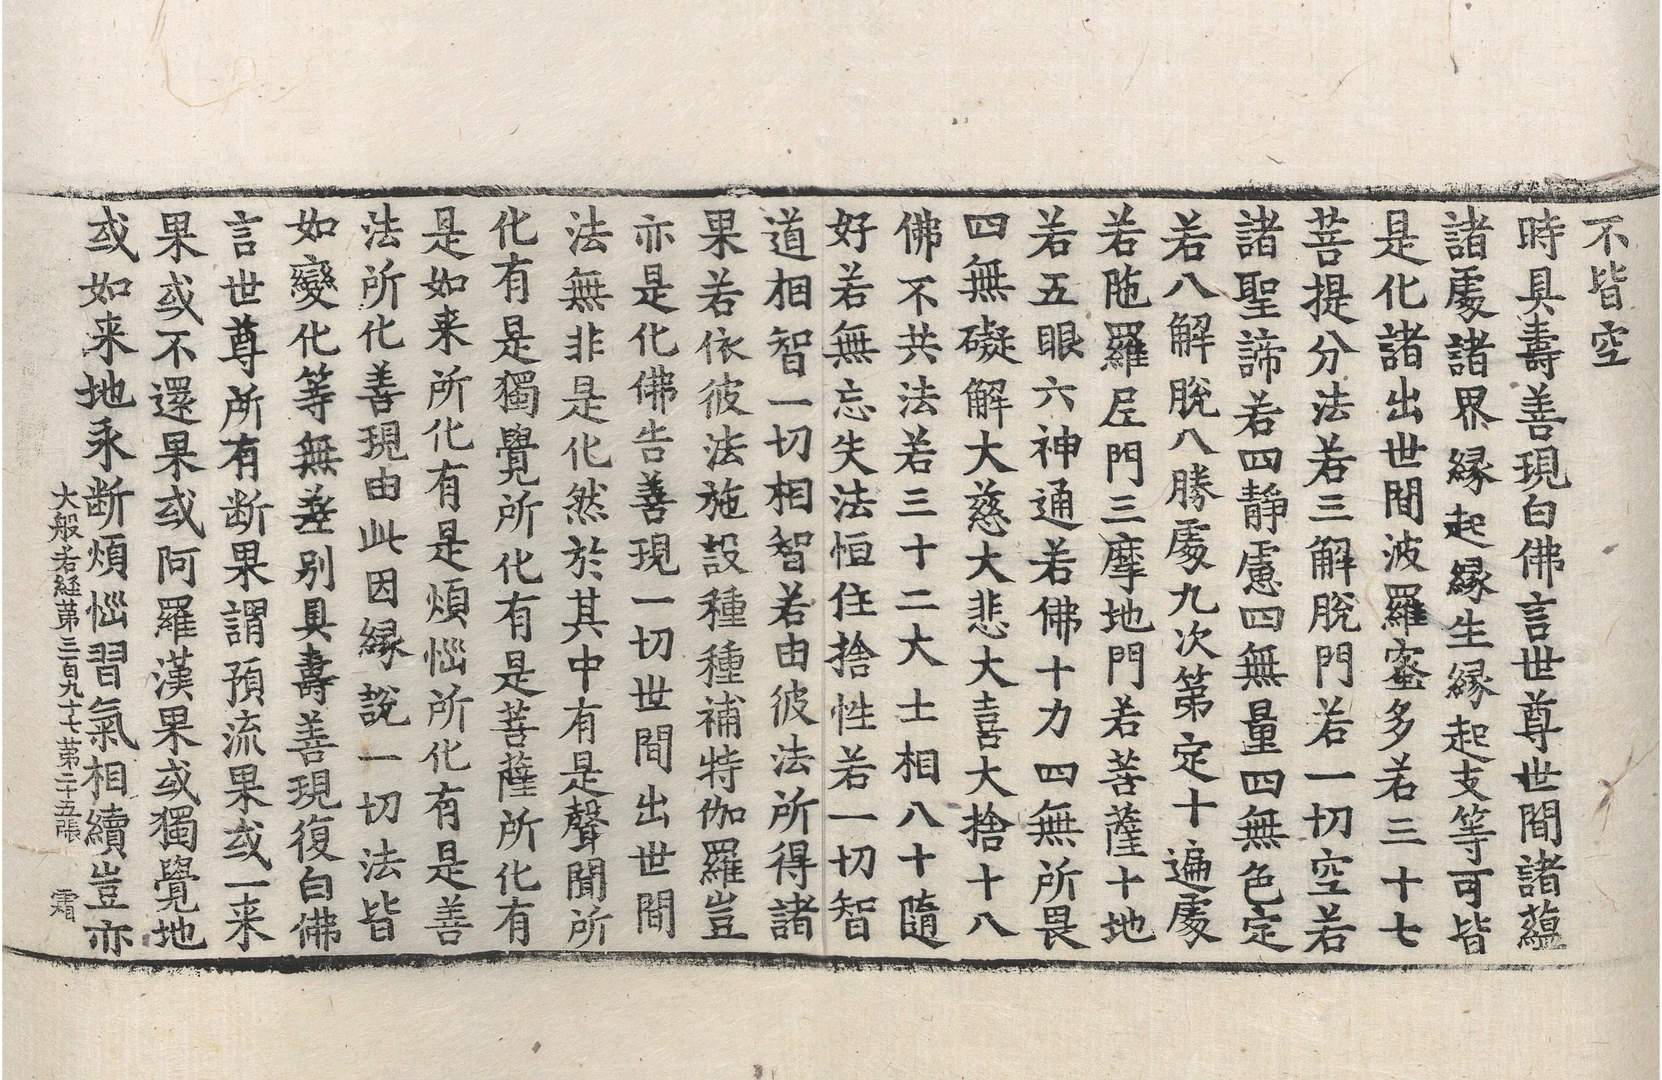 不皆空
時具壽善現白佛言世尊世間諸蘊
諸處諸界縁起縁生縁起支等可皆
是化諸出世間波羅蜜多若三十七
菩提分法若三解脫門若一切空若
諸聖諦若四靜慮四無量四無色定
若八解脫八勝處九次第定十遍處
若陁羅尼門三摩地門若菩薩十地
若五眼六神通若佛十力四無所畏
四無礙解大慈大悲大喜大捨十八
佛不共法若三十二大士相八十隨
好若無忘失法恒住捨性若一切智
道相智一切相智若由彼法所得諸
果若依彼法施設種種補特伽羅豈
亦是化佛告善現一切世間出世間
法無非是化然於其中有是聲聞所
化有是獨覺所化有是菩薩所化有
是如来所化有是煩惱所化有是善
法所化善現由此因縁說一切法皆
如變化等無差別具壽善現復白佛
言世尊所有断果謂預流果或一来
果或不還果或阿羅漢果或獨覺地
或如来地永断煩惱習氣相續豈亦
大般若経第三百九十七第二十五張 霜